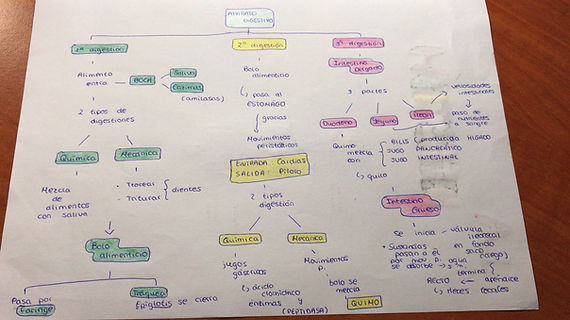 APARATO
DIGESTIVO
1ª digestión
Alimento
entra
BOCA
Saliva
Enzimas
(amilasas)
2 tipos de
digestiones
Química
Mecánica
Mezcla
de
alimentos
con saliva
• Trocear
• Triturar
dientes
Bolo
alimenticio
Pasa por
faringe
Tráquea
Epiglotis se cierra
2ª digestión
Bolo
alimenticio
pasa al
ESTÓMAGO
gracias
Movimientos
peristálticos
ENTRADA: Cardias
SALIDA: Píloro
2 tipos
digestión
Química
Mecánica
jugos
gástricos
ácido
clorhídrico
enzimas y
(PEPTIDASA)
Movimientos
P.
bolo se
mezcla
QUIMO
3ª digestión
Intestino
Delgado
3 partes
Duodeno
Yeyuno
Ileon
vellosidades
intestinales
paso de
nutrientes
a sangre
Quimo
mezcla
con
BILIS (producida HÍGADO
JUGO PANCREÁTICO
JUGO INTESTINAL
quilo
Intestino
Grueso
Se inicia - válvula
ileocecal
• Sustancias en fondo
pasan a él saco
por mov P. agua (ciego)
se absorbe
termina
RECTO apéndice
Heces fecales